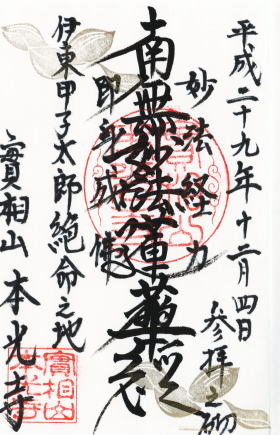 平成二十九年十二月四日
参拝之砌
妙法経力
南無妙法蓮華経
即身成佛
伊東甲子太郎絶命之地
實相山 本光寺
實相山
本光寺